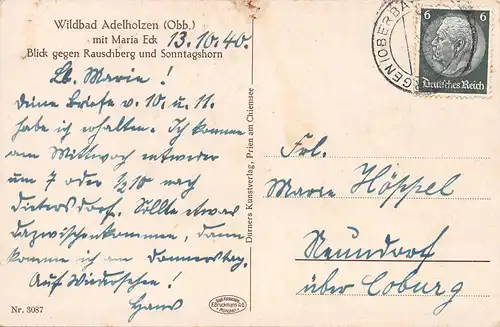 Wildbad Adelholzen (Obb.)
mit Maria Eck
Blick gegen Rauschberg und Sonntagshorn
13.10.40.
Lb. Marie!
Deine Briefe v. 10. u. 11.
habe ich erhalten. Ich komme
am Mittwoch entweder
um 7 oder ½10 nach
Dietersdorf. Sollte etwas
dazwischenkommen, dann
komme ich am Donnerstag.
Auf Wiedersehen!
Hans
Nr. 3087
Durners Kunstverlag, Prien am Chiemsee
F. Bruckmann AG
München
GEN (OBERBA
6 6
Deutsches Reich
Frl.
Marie Höppel
Neundorf
über Coburg